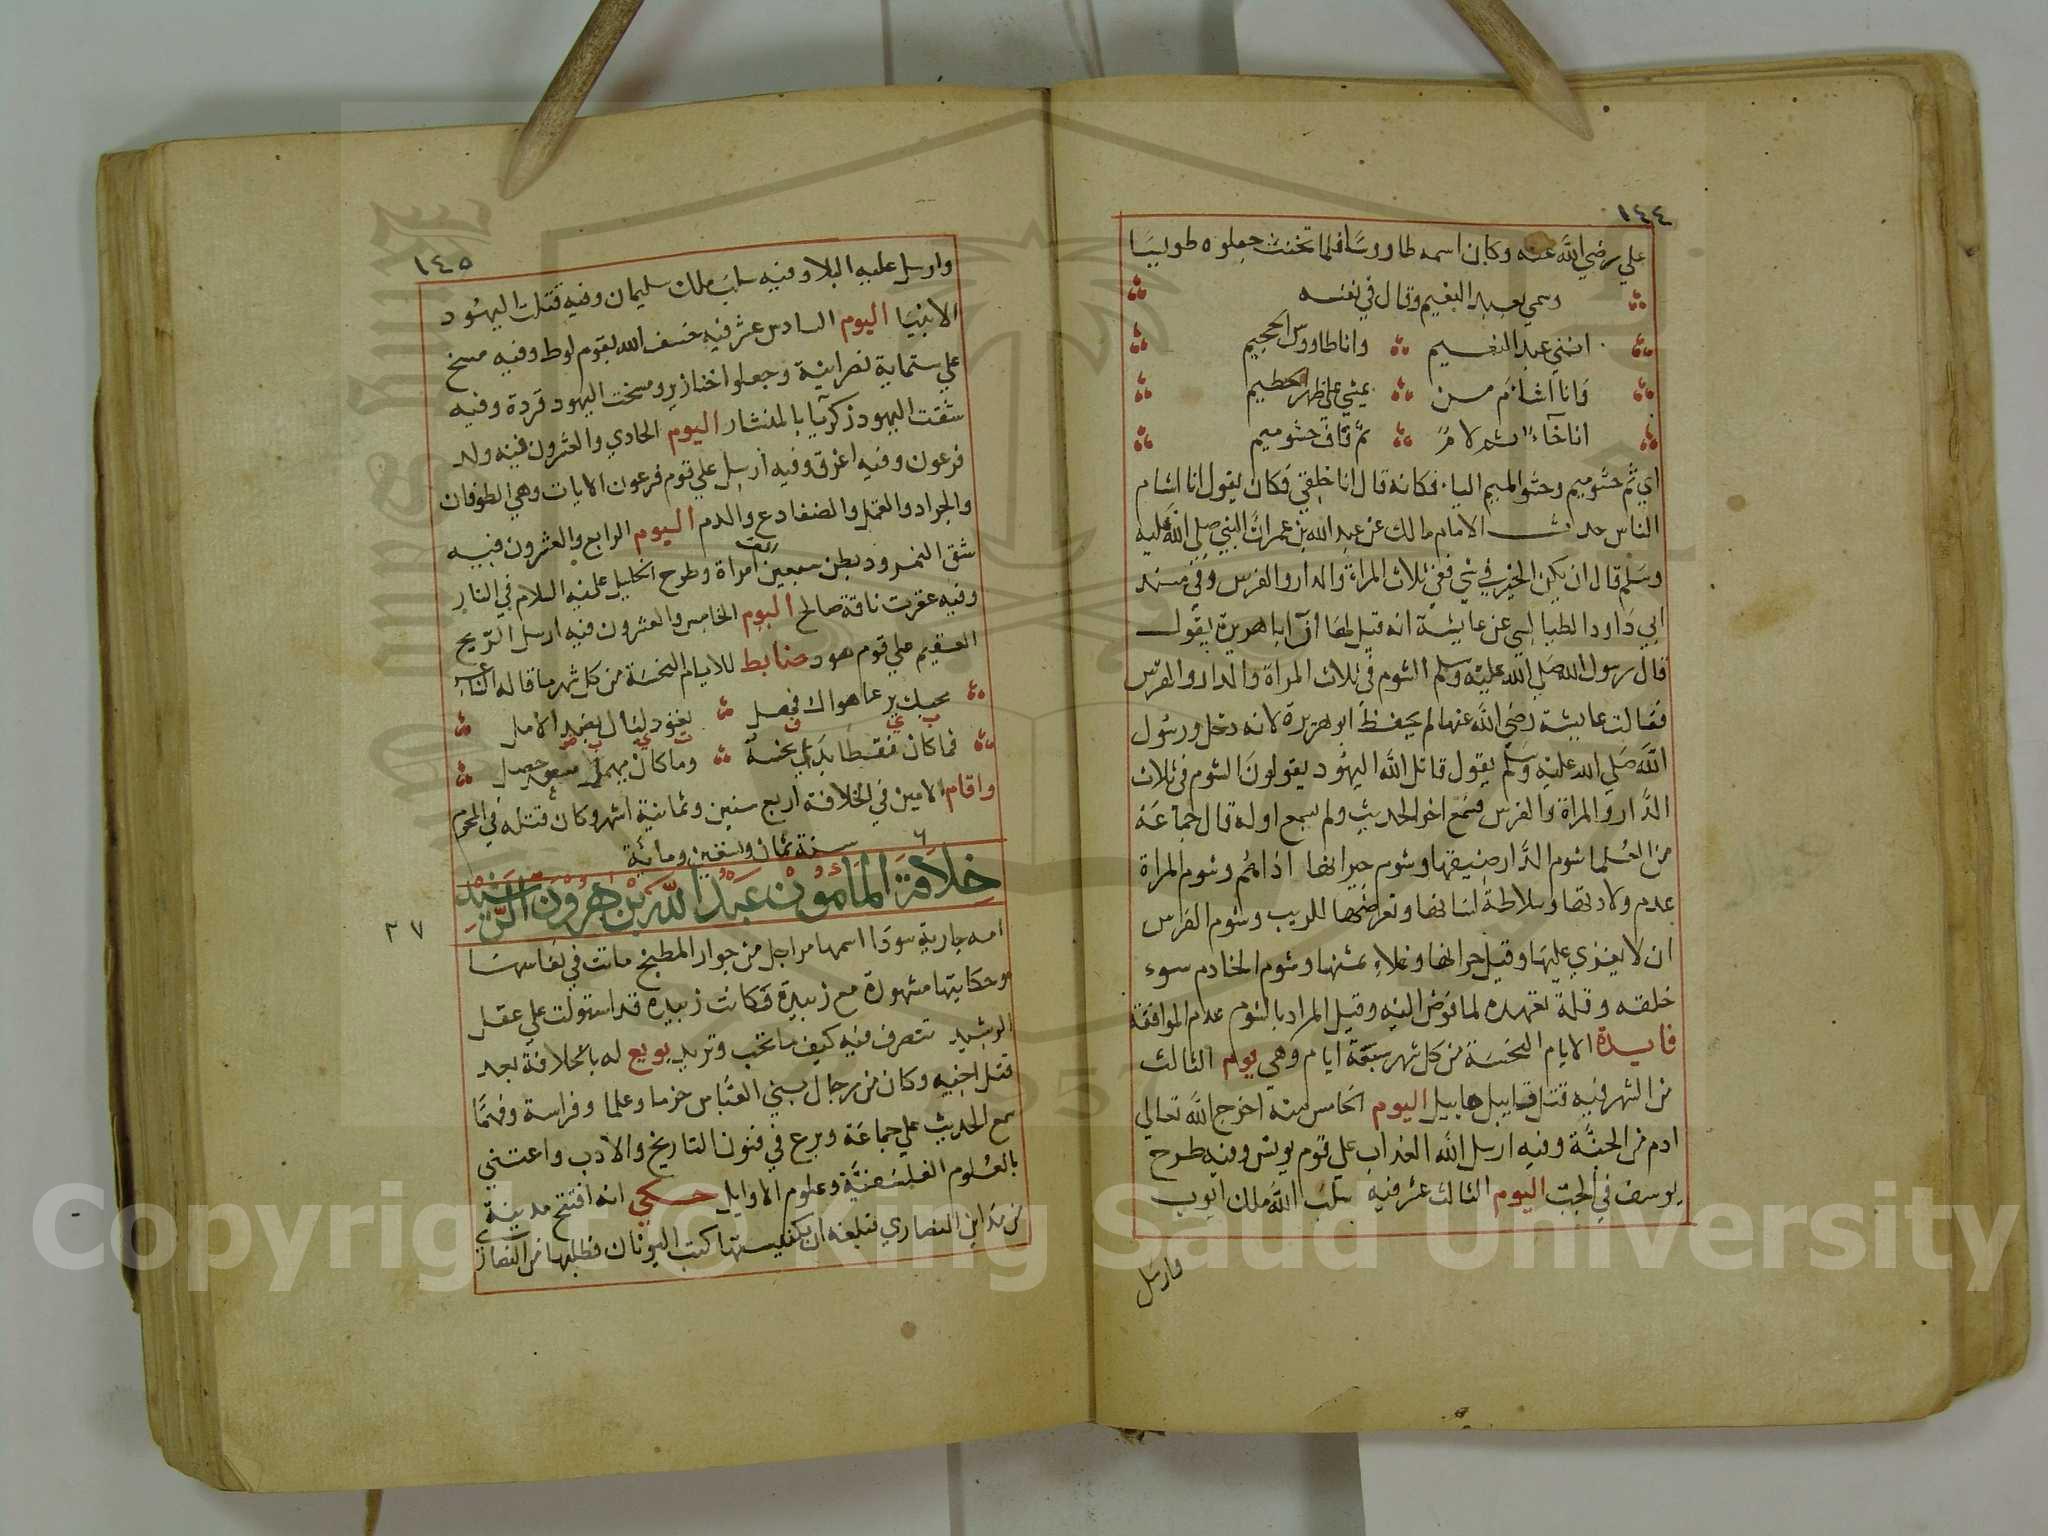 ١٤٤
علي رضي الله عنه وكان اسمه طاووسا فلما تخنث جعلوه طويسا
وسمي بعبد النعيم وقال في نفسه
انني عبد النعيم وانا طاووس الجحيم
وانا اشام من يمشي على ظهر الحطيم
انا حاء ثم لام ثم قاف حشو ميم
اي ثم حشو ميم وحشو الميم اليا فكانه قال انا حلقي فكان يقول انا اشام
الناس حدث الامام مالك عن عبد الله بن عمر ان النبي صلي الله عليه
وسلم قال ان يكن الخير في شي ففي ثلاث المراة والدار والفرس وفي مسند
ابي داود الطيالسي عن عايشة انه قيل لها ان ابا هريرة يقول
قال رسول الله صلي الله عليه وسلم الشوم في ثلاث المراة والدار والفرس
فقالت عايشة رضي الله عنها لم يحفظ ابو هريرة لانه دخل ورسول
الله صلي الله عليه وسلم يقول قاتل الله اليهود يقولون الشوم في ثلاث
الدار والمراة والفرس فسمع اخر الحديث ولم يسمع اوله قال جماعة
من العلما شوم الدار ضيقها وشوم جيرانها اذا هم وشوم المراة
عدم ولادتها وسلاطة لسانها وتعرضها للريب وشوم الفرس
ان لا يغزي عليها وقيل حرانها وغلاء ثمنها وشوم الخادم سوء
خلقه وقلة تعهده لما فوض اليه وقيل المراد بالشوم عدم الموافقة
فايدة الايام النحسة من كل شهر سبعة ايام وهي يوم الثالث
من الشهر فيه قتل قابيل هابيل اليوم الخامس منه اخرج الله تعالي
ادم من الجنة وفيه ارسل الله العذاب علي قوم يونس وفيه طرح
يوسف في الجب اليوم الثالث عشر فيه سلب الله ملك ايوب
وارسل
١٤٥
وارسل عليه البلا وفيه سلب ملك سليمان وفيه قتلت اليهود
الانبيا اليوم السادس عشر فيه خسف الله بقوم لوط وفيه مسخ
علي ستماية نصرانية وجعلوا خنازير ومسخت اليهود قردة وفيه
شقت اليهود زكريا بالمنشار اليوم الحادي والعشرون فيه ولد
فرعون وفيه اغرق وفيه ارسل علي قوم فرعون الايات وهي الطوفان
والجراد والقمل والضفادع والدم اليوم الرابع والعشرون فيه
شق النمرود بطن سبعين امراة وطرح الخليل عليه السلام في النار
وفيه عقرت ناقة صالح اليوم الخامس والعشرون فيه ارسل الريح
العقيم علي قوم هود ضابط للايام النحسة من كل شهر ما قاله الشاعر
محبك يرعا هواك فهل يعود ليال بضد الامل
فما كان منقطا بدا نحسه وما كان مهملا سعود حصل
واقام الامين في الخلافة اربع سنين وثمانية اشهر وكان قتله في المحرم
سنة ثمان وتسعين وماية
خلافة المامون عبد الله بن هرون الرشيد
٣٧
امه جارية سودا اسمها مراجل من جوار المطبخ ماتت في نفاسها
وحكايتها مشهورة مع زبيدة فكانت زبيدة قد استولت علي عقل
الرشيد تتصرف فيه كيف ما تحب وتريد بويع له بالخلافة بعد
قتل اخيه وكان من رجال بني العباس حزما وعلما وفراسة وفهما
سمع الحديث علي جماعة وبرع في فنون التاريخ والادب واعتني
بالعلوم الفلسفية وعلوم الاوايل حكي انه افتتح مدينة
من مداين النصاري فبلغه ان بكنيستها كتب اليونان فطلبها من النصار
Copyright © King Saud University
1957